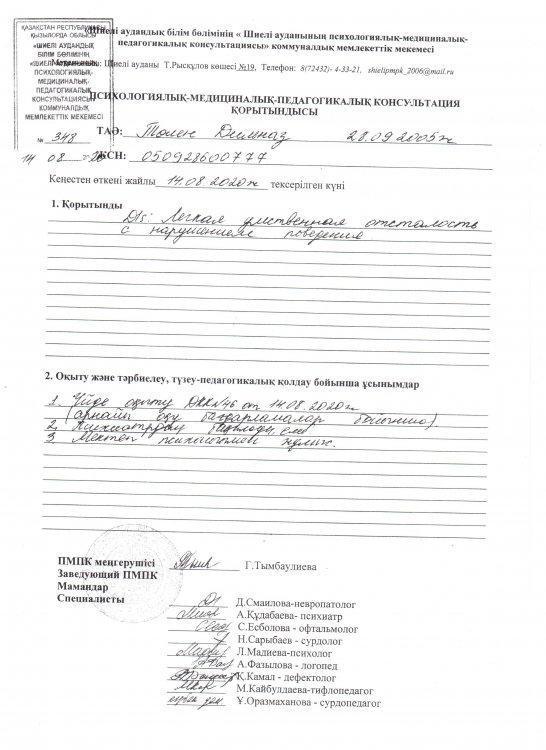 ҚАЗАҚСТАН РЕСПУБЛИКАСЫ
ҚЫЗЫЛОРДА ОБЛЫСЫ
«ШИЕЛІ АУДАНДЫҚ
БІЛІМ БӨЛІМІНІҢ
«ШИЕЛІ АУДАНЫНЫҢ
ПСИХОЛОГИЯЛЫҚ-
МЕДИЦИНАЛЫҚ-
ПЕДАГОГИКАЛЫҚ
КОНСУЛЬТАЦИЯСЫ»
КОММУНАЛДЫҚ
МЕМЛЕКЕТТІК МЕКЕМЕСІ
№ 348
14 08
«Шиелі аудандық білім бөлімінің « Шиелі ауданының психологиялық-медициналық-
педагогикалық консультациясы» коммуналдық мемлекеттік мекемесі
Шиелі ауданы Т.Рысқұлов көшесі №19, Телефон: 8/72432)- 4-33-21, shielipmpk_2006@mail.ru
ПСИХОЛОГИЯЛЫҚ-МЕДИЦИНАЛЫҚ-ПЕДАГОГИКАЛЫҚ КОНСУЛЬТАЦИЯ
ҚОРЫТЫНДЫСЫ
ТАӘ: Төлен Дилназ 28.09.2005ж
ЖСН: 050928600777
Кеңестен өткені жайлы 14.08.2020ж тексерілген күні
1. Қорытынды
Ds: Легкая умственная отсталость
с нарушением поведения
2. Оқыту және тәрбиелеу, түзеу-педагогикалық қолдау бойынша ұсынымдар
1. Үйде оқыту №46 от 14.08.2020ж
(арнайы оқу бағдарламалар бойынша)
2. бақылау, ем
3. Мектеп көмек.
ПМПК меңгерушісі Г.Тымбаулиева
Заведующий ПМПК
Мамандар
Специалисты
Д.Смаилова-невропатолог
А.Құдабаева- психиатр
С.Есболова - офтальмолог
Н.Сарыбаев - сурдолог
Л.Мадиева-психолог
А.Фазылова - логопед
Қ.Камал - дефектолог
М.Кайбулдаева-тифлопедагог
Ұ.Оразмаханова - сурдопедагог